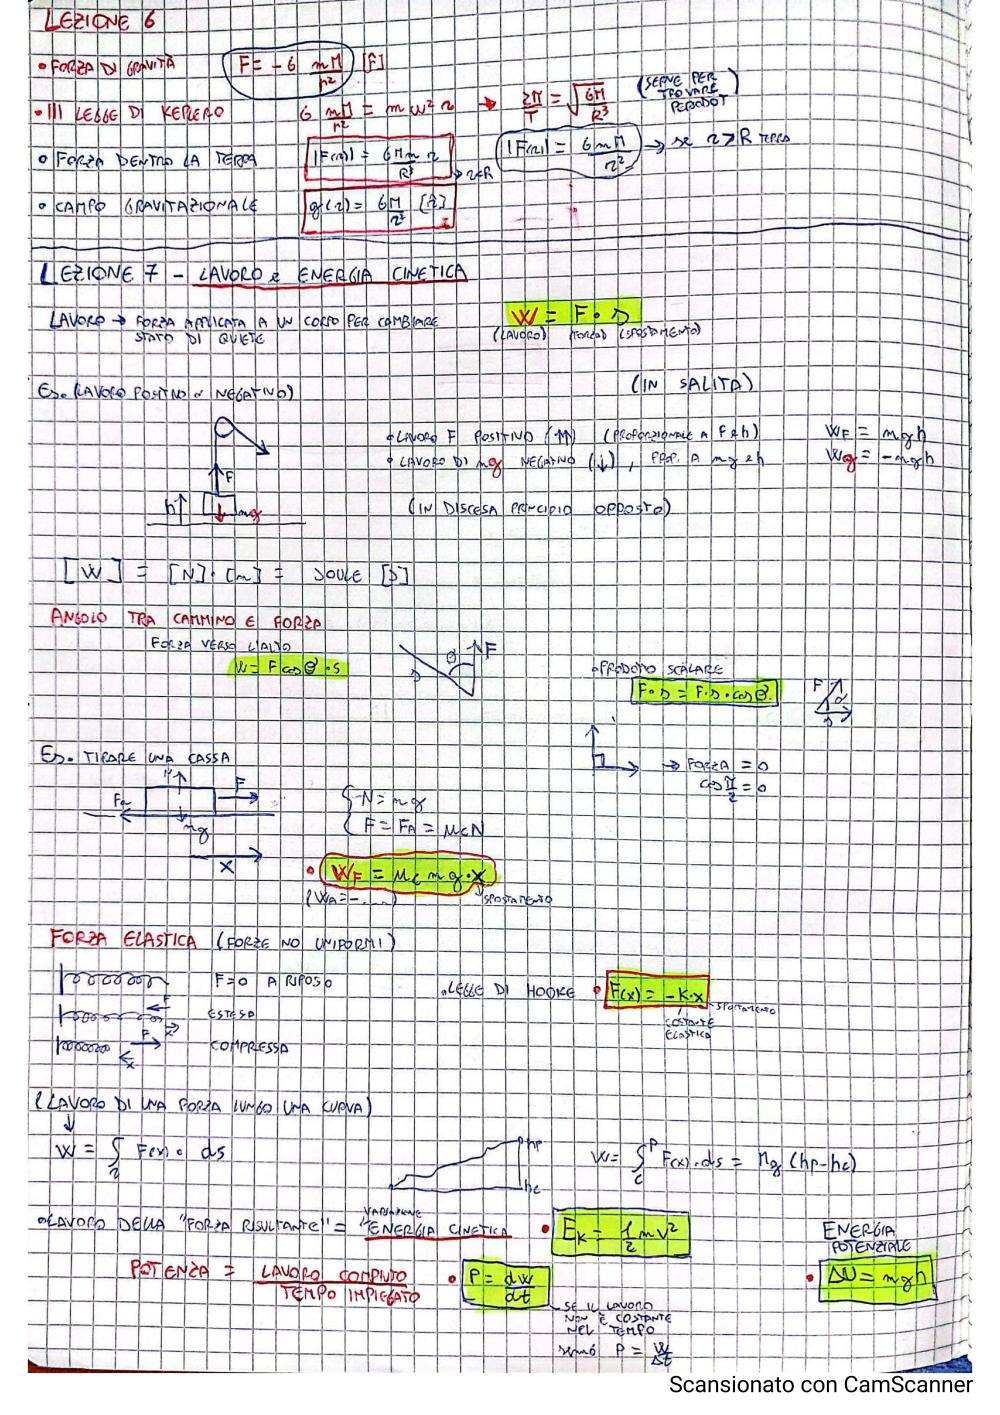 LEZIONE 6
• FORZA DI GRAVITÀ F = - G mM/r² [r̂]
• III LEGGE DI KEPLERO G mM/r² = m ω² r → 2π/T = √GM/R³ (SERVE PER TROVARE PERIODO T)
• FORZA DENTRO LA TERRA |F(r)| = GMm/R³ r → r<R |F(r)| = GmM/r² → se r > R TERRA
• CAMPO GRAVITAZIONALE g(r) = GM/r² [r̂]
LEZIONE 7 - LAVORO e ENERGIA CINETICA
LAVORO → FORZA APPLICATA A UN CORPO PER CAMBIARE W = F · s
STATO DI QUIETE (LAVORO) (FORZA) (SPOSTAMENTO)
Es. (LAVORO POSITIVO e NEGATIVO) (IN SALITA)
• LAVORO F POSITIVO (↑↑) (PROPORZIONALE A F e h) WF = mgh
• LAVORO DI mg NEGATIVO (↓), PROP. A mg e h Wg = -mgh
F
h mg (IN DISCESA PRINCIPIO OPPOSTO)
[W] = [N]·[m] = JOULE [J]
ANGOLO TRA CAMMINO E FORZA
FORZA VERSO L'ALTO
W = F cos θ · s θ F s
• PRODOTTO SCALARE
F · s = F·s·cos θ F s
Es. TIRARE UNA CASSA → FORZA = 0
cos π/2 = 0
N F
Fa mg
N = mg
F = FA = μc N
x
• WF = μc m g · x
(WA = -....) SPOSTAMENTO
FORZA ELASTICA (FORZE NO UNIFORMI)
F=0 A RIPOSO • LEGGE DI HOOKE • F(x) = -K·x SPOSTAMENTO
F x ESTESA COSTANTE ELASTICA
F x COMPRESSA
(LAVORO DI UNA FORZA LUNGO UNA CURVA)
W = ∫ F(x) · ds hp hc W = ∫ F(x)·ds = mg (hp-hc)
• LAVORO DELLA "FORZA RISULTANTE" = VARIAZIONE "ENERGIA CINETICA • EK = 1/2 mv²
ENERGIA POTENZIALE
POTENZA = LAVORO COMPIUTO/TEMPO IMPIEGATO • P = dW/dt • ΔU = mgh
SE IL LAVORO
NON È COSTANTE
NEL TEMPO
sennò P = W/Δt
Scansionato con CamScanner